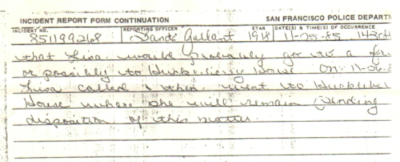 INCIDENT REPORT FORM CONTINUATION SAN FRANCISCO POLICE DEPARTM
INCIDENT NO. REPORTING OFFICER STAR DATE(S) & TIME(S) OF OCCURRENCE
851199268 Sandi Gallant 1918 11-25-85
that Lisa would probably go to a
or possibly to Huckleberry House On 11-26-8
Lisa called & then went to Huckleber
House where she will remain pending
disposition of this matter.